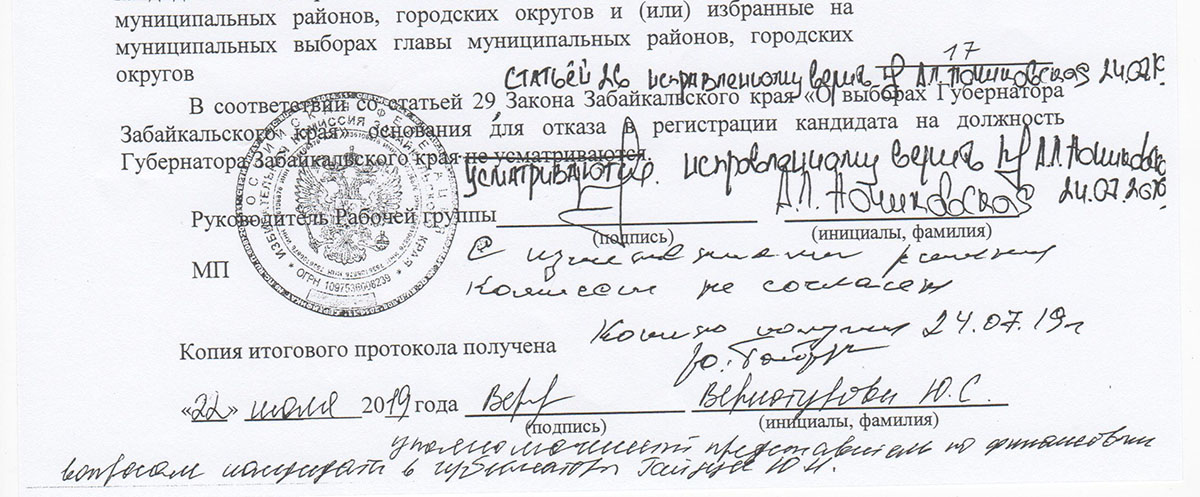 муниципальных районов, городских округов и (или) избранные на
муниципальных выборах главы муниципальных районов, городских
округов
17
статьёй 26 исправленному верить А.П. 24.07.
В соответствии со статьей 29 Закона Забайкальского края «О выборах Губернатора
Забайкальского края» основания для отказа в регистрации кандидата на должность
Губернатора Забайкальского края не усматриваются
усматриваются. исправленному верить А.П.
24.07.
Руководитель Рабочей группы А.П.
(подпись) (инициалы, фамилия)
МП
ОГРН 1097536008239
С решением
комиссии не согласен
Копию получил 24.07.19г
Копия итогового протокола получена
«22» июля 2019 года Ю.С.
(подпись) (инициалы, фамилия)
уполномоченный представитель по финансовым
вопросам кандидата в губернаторы Гайдук Ю.Н.